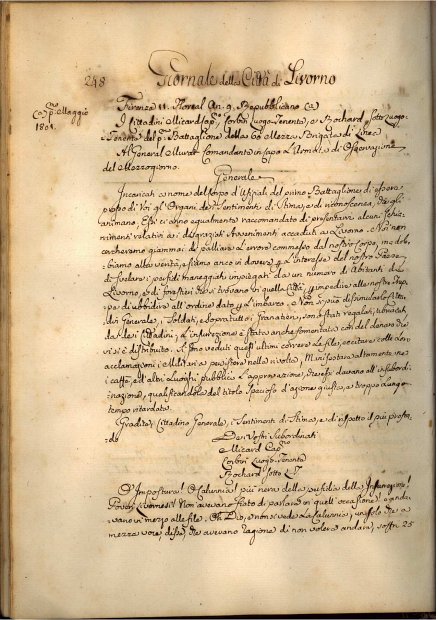 248
Giornale della Città di Livorno
Maggio
1801.
Firenze 11. Floreal An. 9. Repubblicano
I Cittadini Micard Cap.no Corbin Luogo-Tenente, e Bochard Sotto Luogo-
Tenente del p.mo Battaglione della 60 Mezza Brigata di Linea
Al General Murat Comandante in capo l'Armata di Osservazione
del Mezzogiorno.
Generale
Incaricati a nome del Corpo d'Uffiziali del primo Battaglione di essere
presso di Voi gli Organi dei Sentimenti di Stima, e di riconoscenza, che gli
animano, Essi ci anno egualmente raccomandato di presentarvi alcuni schia-
rimenti relativi ai disgraziati Avvenimenti accaduti a Livorno. Noi non
cercheremo giammai di palliare l'errore commesso dal nostro Corpo, ma dob-
biamo alla verità, e siamo anco in dovere p. l'Interesse del nostro Paese
di svelare i perfidi maneggi impiegati da un numero di Abitanti di
Livorno, e di forestieri che si trovano in quella Città, p. impedire alla nostra Trup-
pa di ubbidire all'ordine dato p. l'imbarco. Non si può dissimulare Citta-
din Generale, i Soldati, e Sopratutto i Granatieri, sono stati regalati, ubriacati
da dei Cittadini, e l'insurrezione è stata anche fomentata con del denaro che
vi si è distribuito. Si sono veduti quest'ultimi correre le file, eccitare colle loro
acclamazioni i Militari a persistere nella rivolta, Manifestare altamente ne
i caffè, ed altri Luoghi pubblici l'approvazione, che essi davano all'insubordi-
nazione, qualificandola del titolo specioso d'azione giusta, e troppo lungo
tempo ritardata.
Gradite, Cittadino Generale, i Sentimenti di Stima, e di rispetto il più profon-
do
Dei Vostri Subordinati
Micard Cap.no
Corbin Luogo-Tenente
Bochard Sotto L.T.
O Impostura! O Calunnia! più nera della perfidia della Insurrezione!
Poveri Livornesi! Non avevano fiato di parlare in quell'occasione! e anda-
vano in mezzo alle file. Oh Dio, e non si vede la Calunnia, un solo che a
mezza voce, disse, che avevano ragione di non volere andare, soffrì 25